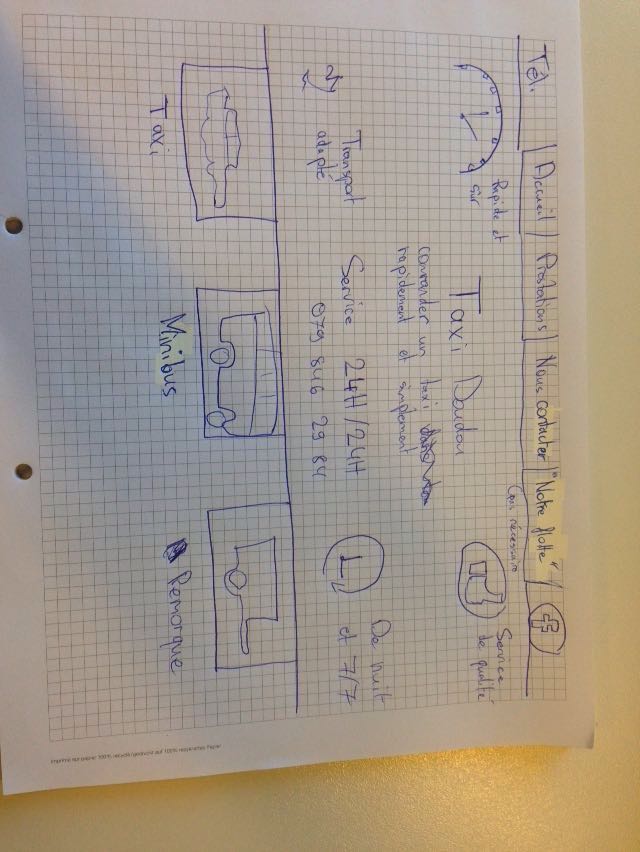 Tél.
Accueil
Prestations
Nous contacter
"Notre flotte"
f
(pas nécessaire
Rapide et
sûr
Service
de qualité
Taxi Doudou
commander un taxi
rapidement et simplement
Transport
adapté
Service 24H/24H
079 846 29 84
De nuit
et 7/7
Taxi
Minibus
Remorque